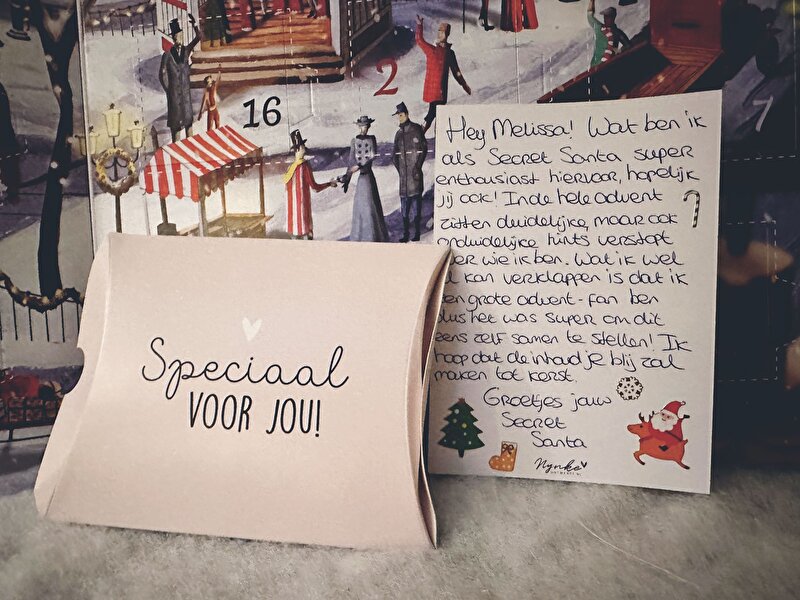 16
2
7
Speciaal
VOOR JOU!
Hey Melissa! Wat ben ik
als Secret Santa super
enthousiast hiervoor, hopelijk
jij ook! In de hele advent
zitten duidelijke, maar ook
onduidelijke hints verstopt
over wie ik ben. Wat ik wel
kan verklappen is dat ik
een grote advent-fan ben
plus het was super om dit
eens zelf samen te stellen! Ik
hoop dat de inhoud je blij zal
maken tot kerst.
Groetjes jouw
Secret
Santa
Nynke